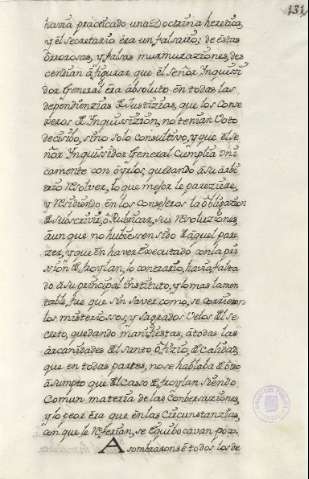 131
havia practicado una Doctrina heretica,
y el Secretario era un falsario; de estas
horrorosas, y falsas murmuraciones, des
cendian à figurar, que el Señor Inquisi
dor General era absoluto en todas las
dependenzias de Justizias, que los Conse
xeros de Inquisizion, no tenian Voto
decisibo, sino solo consultivo, y que el Se
ñor Inquisidor General cumplia uni
camente con oyrlos quedando a su arbi
trio resolver, lo que mejor le pareziese,
y residiendo en los Consejeros la obligation
de subscrivir, ò rubricar, sus resoluziones,
aun que no hubiessen sido de aquel pare
zer, y que en haver executado con la pri
sion de froylan, lo contrario, havia falta
do a su principal instituto, y lo mas lamen
table, fue que sin saver como, se corrieron
los misteriosos, y sagrados Velos del Se
creto, quedando manifiestas, à todas, las
arcanidades del Santo Ofizio, de Calidad,
que en todas partes, no se hablaba de otro
asumpto que del Caso de froylan, siendo
Comun materia de las Conbersaziones,
y lo peor era que en las Circunstanzias,
con que le referian, se equibocavan poco.
Asombraronse todos los de